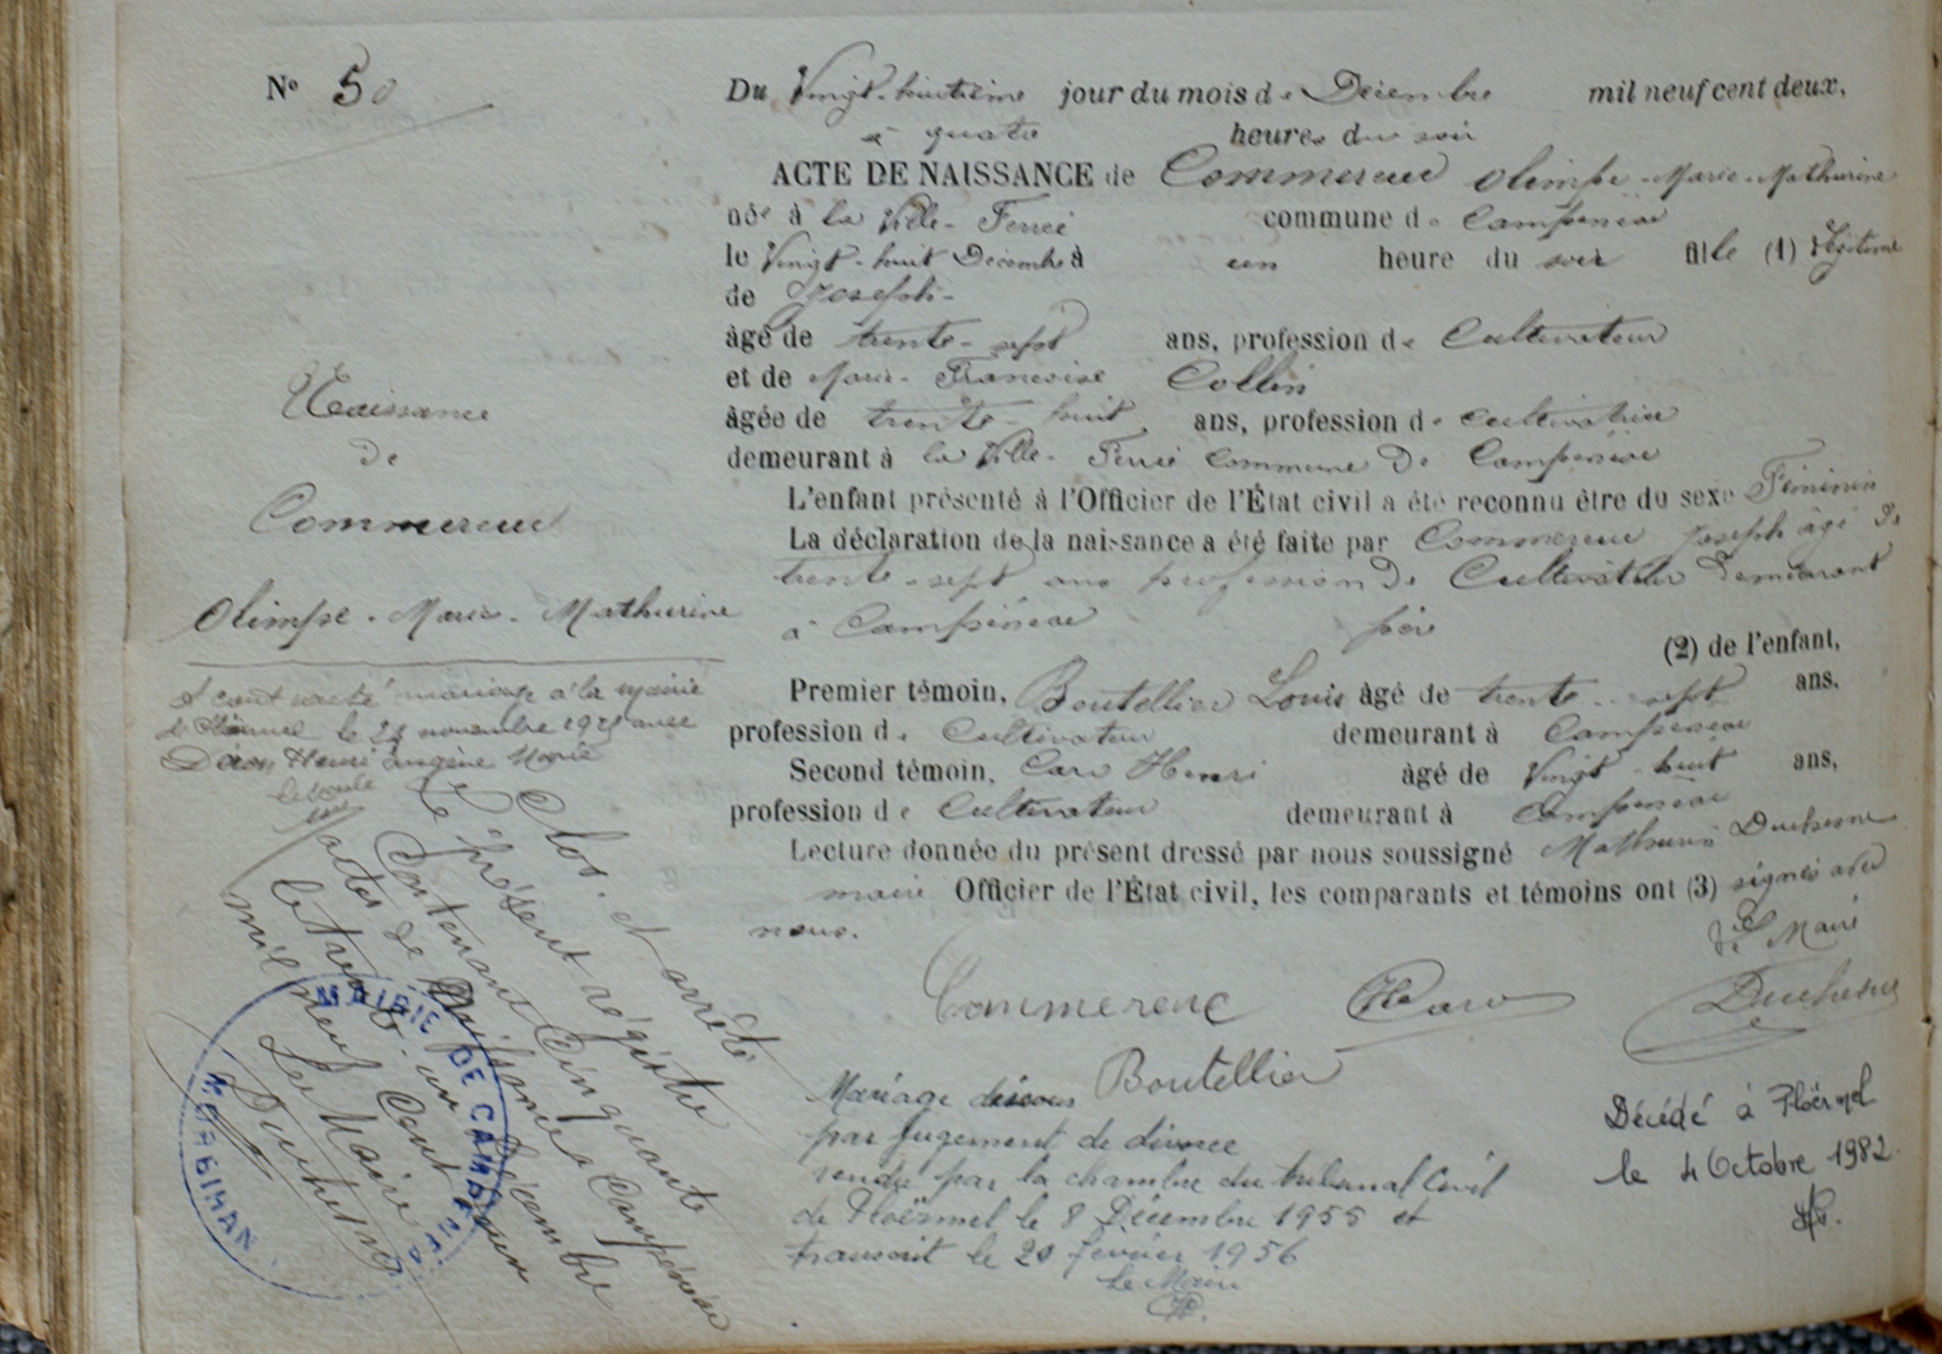 N° 50
Du Vingt-huitième jour du mois de Décembre mil neuf cent deux,
à quatre heures du soir
ACTE DE NAISSANCE de Commereuc Olimpe-Marie-Mathurine
née à la Ville-Ferré commune de Campénéac
le Vingt-huit Décembre à un heure du soir fille (1) légitime
de Joseph-
âgé de trente-sept ans, profession de Cultivateur
et de Marie-Francoise Collin
âgée de trente-huit ans, profession de cultivatrice
demeurant à la Ville-Ferré commune de Campénéac
L'enfant présenté à l'Officier de l'État civil a été reconnu être du sexe Féminin
La déclaration de la naissance a été faite par Commereuc Joseph âgé de
trente-sept ans profession de Cultivateur demeurant
à Campénéac père (2) de l'enfant,
Premier témoin, Boutellier Louis âgé de trente-sept ans,
profession de Cultivateur demeurant à Campénéac
Second témoin, Caro Henri âgé de Vingt-huit ans,
profession de Cultivateur demeurant à Campénéac
Lecture donnée du présent dressé par nous soussigné Mathurin Duchesne
maire Officier de l'État civil, les comparants et témoins ont (3) signés avec
nous.
Le Maire
Commereuc HCaro Duchesne
Boutellier
Naissance
de
Commereuc
Olimpe-Marie-Mathurine
A contracté mariage à la mairie
de le novembre avec
Henri Eugène Marie
Clos et arrêté
Le présent régistre
Contenant Cinquante
actes de Naissance à Campénéac
le trente-un Décembre
mil neuf Cent deux
Le Maire
Duchesne
MAIRIE DE CAMPÉNÉAC
MORBIHAN
Mariage dissous
par jugement de divorce
rendu par la chambre du tribunal Civil
de Ploërmel le 8 Décembre 1955 et
transcrit le 20 février 1956
le Maire
Décédé à Ploërmel
le 4 Octobre 1982.